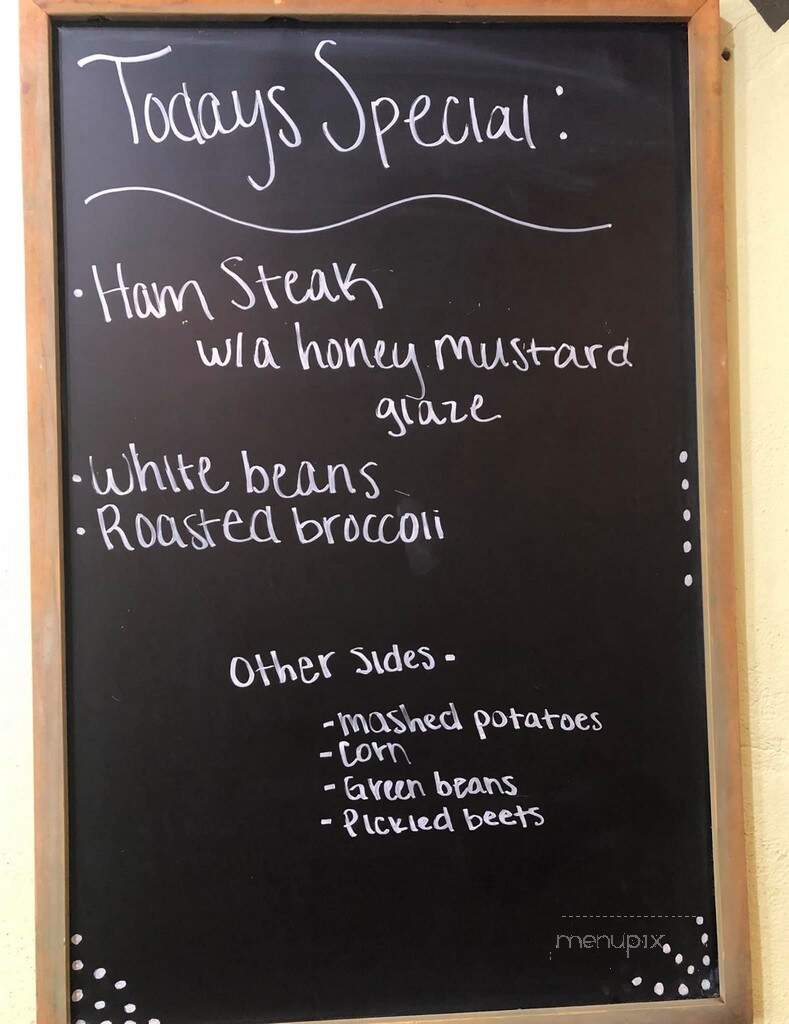 Todays Special:
• Ham Steak
w/a honey mustard
glaze
• White beans
• Roasted broccoli
Other sides -
- mashed potatoes
- corn
- Green beans
- Pickled beets
menupix